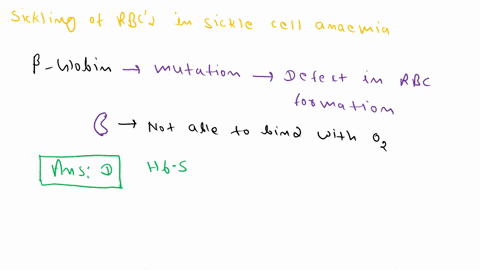 Sickling of RBC's in sickle cell anaemia
β-Globin → mutation → Defect in RBC
formation
→ Not able to bind with O₂
Ans: D Hb-S